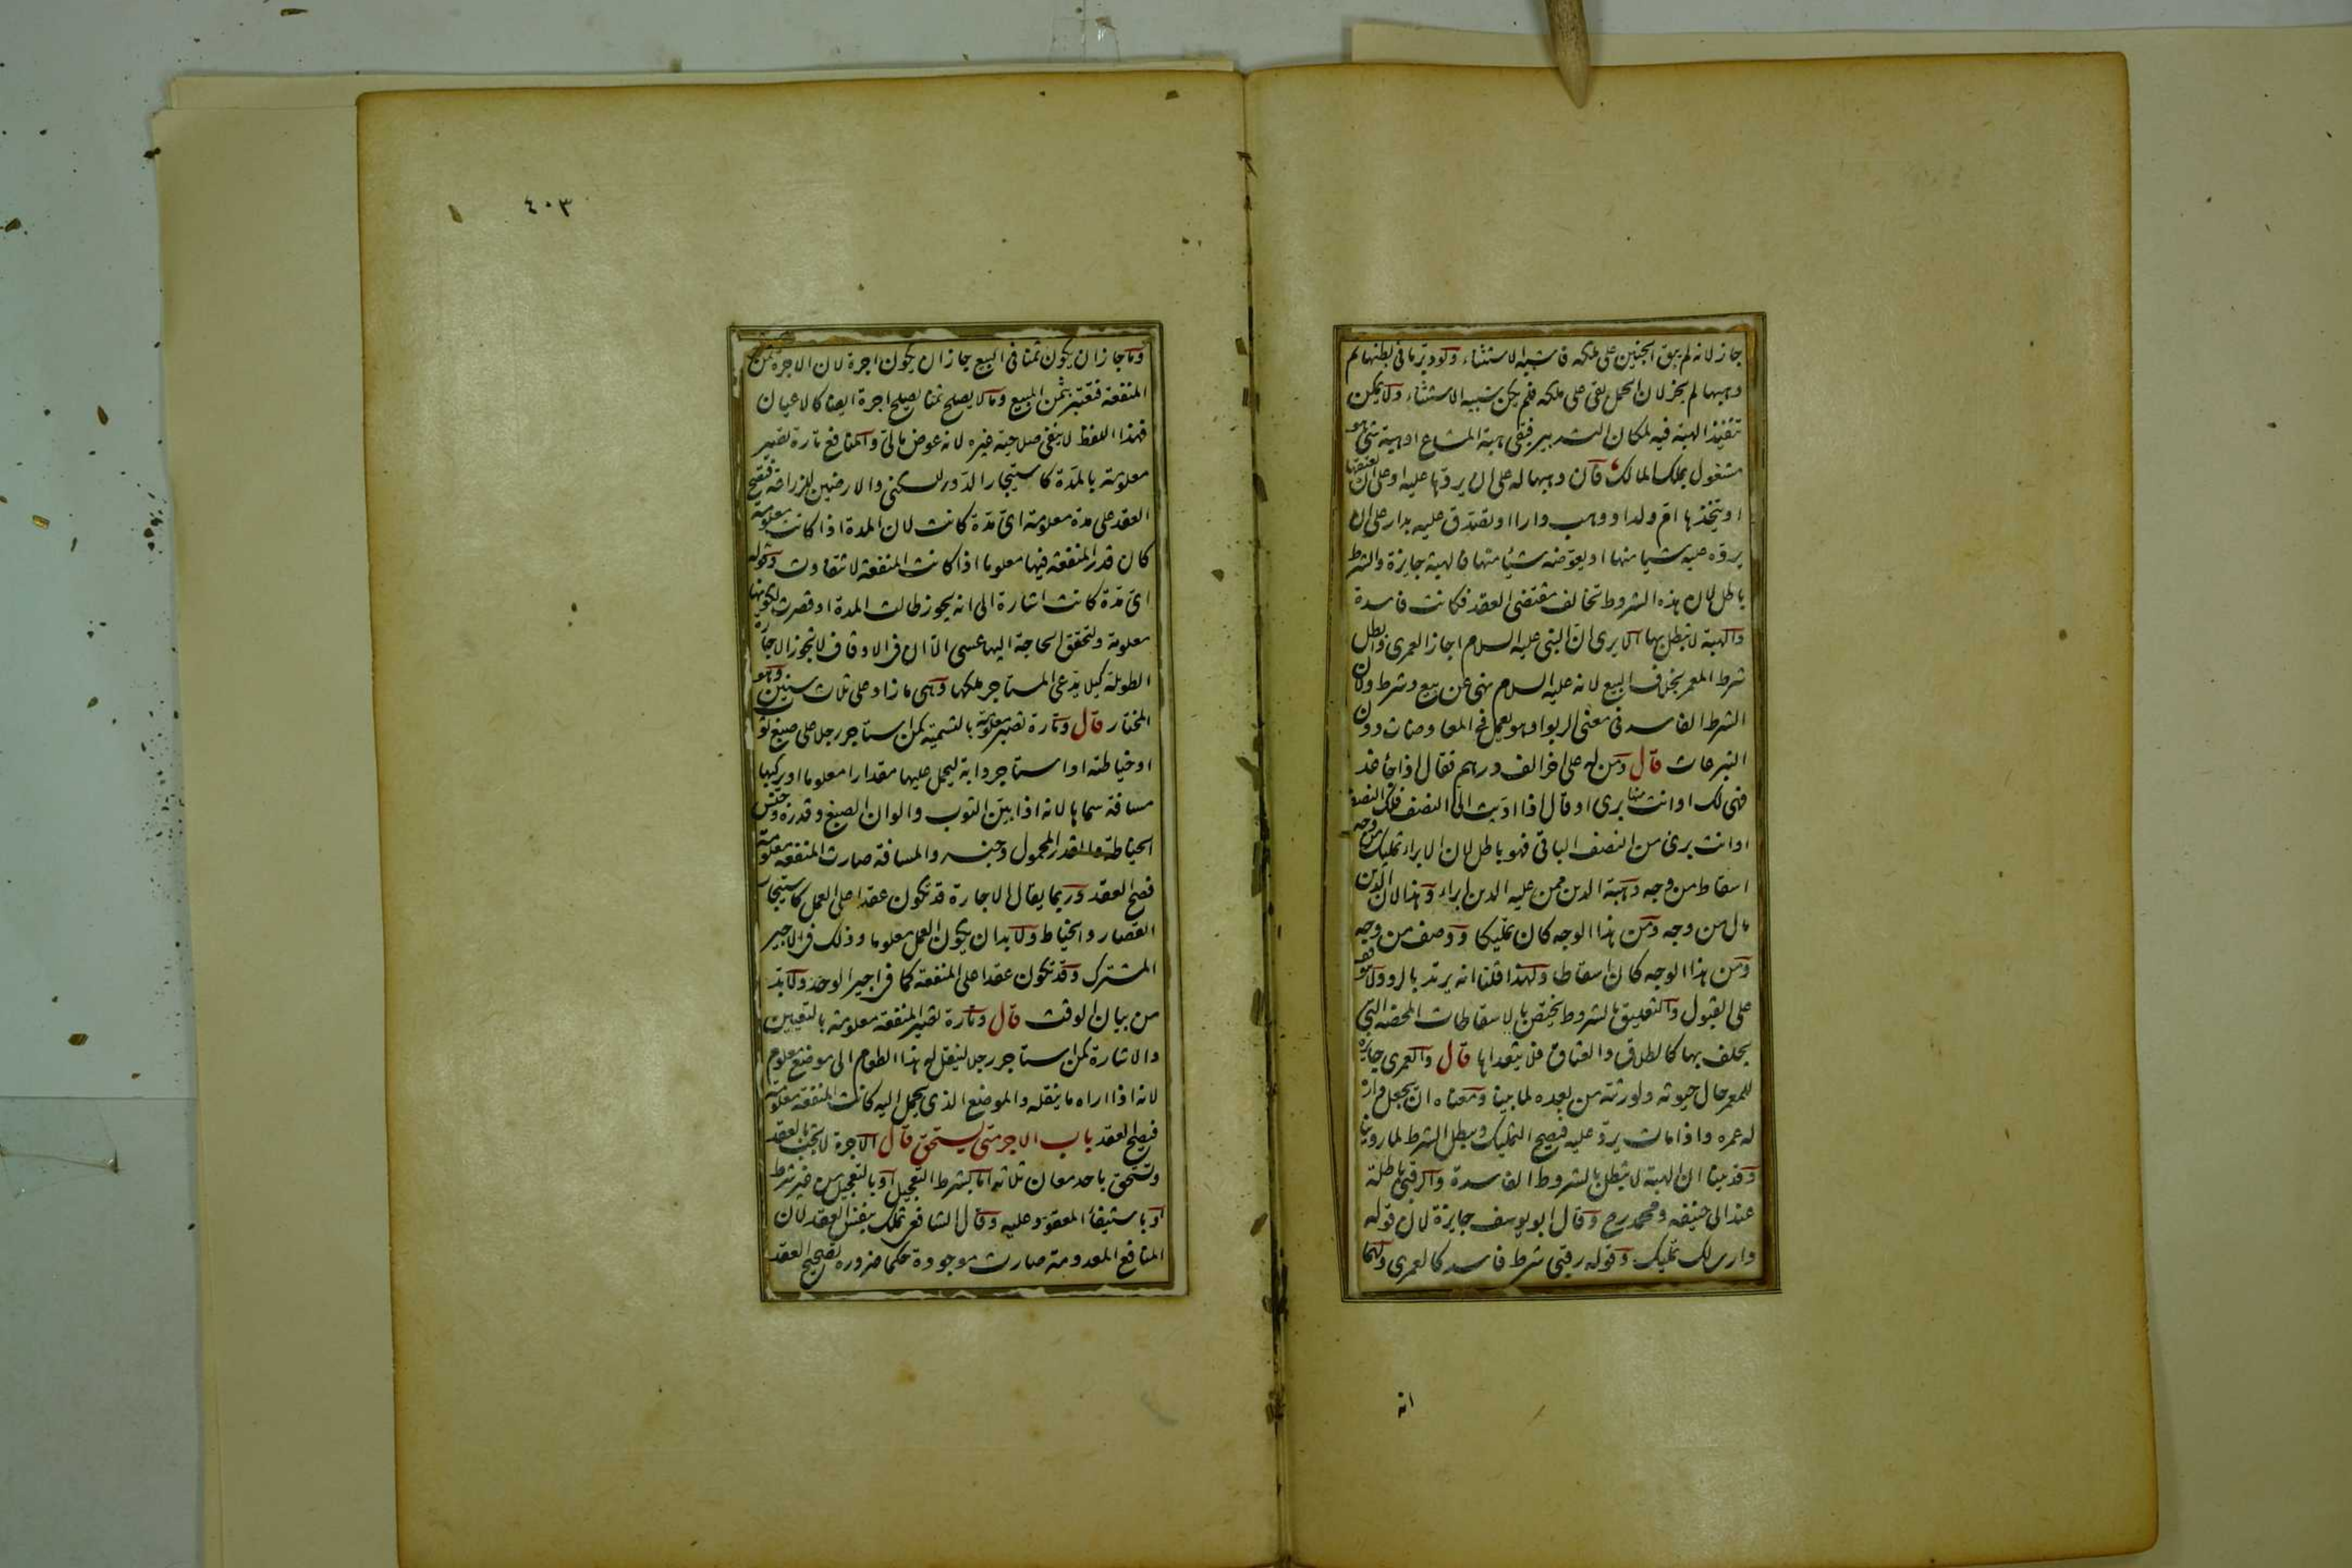 جاز لانه لم يبق الجنين على ملكه فاشبه الاستثناء ولو دبر ما فى بطنها ثم
وهبها لم يجز لان الحمل بقى على ملكه فلم يكن شبيه الاستثناء ولا يمكن
تنفيذ الهبة فيه لمكان التدبير فبقى هبة المشاع او هبة شئ هو
مشغول بملك المالك فان وهبها له على ان يردها عليه او على ان يعتقها
او يتخذها ام ولد او وهب دارا او تصدق عليه بدار على ان
يرد عليه شيا منها او يعوضه شيئا منها فالهبة جايزة والشرط
باطل لان هذه الشروط تخالف مقتضى العقد فكانت فاسدة
والهبة لا تبطل بها الا يرى ان النبى عليه السلام اجاز العمرى وابطل
شرط المعمر بخلاف البيع لانه عليه السلام نهى عن بيع وشرط ولان
الشرط الفاسد فى معنى الربوا وهو يعمل فى المعاوضات دون
التبرعات قال ومن له على اخر الف درهم فقال اذا جاء غد
فهى لك او انت منها برى او قال اذا اديت الى النصف فلك النصف
او انت برئ من النصف الباقى فهو باطل لان الابراء تمليك من وجه
اسقاط من وجه وهبة الدين ممن عليه الدين ابراء وهذا لان الدين
مال من وجه ومن هذا الوجه كان تمليكا ووصف من وجه
ومن هذا الوجه كان اسقاطا ولهذا قلنا انه يرتد بالرد ولا يتوقف
على القبول والتعليق بالشروط يختص بالاسقاطات المحضة التى
يحلف بها كالطلاق والعتاق فلا يتعداها قال والعمرى جايزة
للمعمر حال حيوته ولورثته من بعده لما بينا ومعناه ان يجعل داره
له عمره واذا مات يرد عليه فيصح التمليك ويبطل الشرط لما روينا
وقد بينا ان الهبة لا تبطل بالشروط الفاسدة والرقبى باطلة
عند ابى حنيفة ومحمد رح وقال ابو يوسف جايزة لان قوله
دارى لك تمليك وقوله رقبى شرط فاسد كالعمرى ولهما
انه
٤٠٣
وما جاز ان يكون ثمنا فى البيع جاز ان يكون اجرة لان الاجرة ثمن
المنفعة فتعتبر بثمن المبيع وما لا يصلح ثمنا يصلح اجرة ايضا كالاعيان
فهذا اللفظ لا ينفى صلاحية غيره لانه عوض مالى والمنافع تارة تصير
معلومة بالمدة كاستيجار الدور للسكنى والارضين للزراعة فيصح
العقد على مدة معلومة اى مدة كانت لان المدة اذا كانت معلومة
كان قدر المنفعة فيها معلوما اذا كانت المنفعة لا تتفاوت وقوله
اى مدة كانت اشارة الى انه يجوز طالت المدة او قصرت لكونها
معلومة ولتحقق الحاجة اليها عسى الا ان فى الاوقاف لا تجوز الاجارة
الطويلة كيلا يدعى المستاجر ملكها وهى ما زاد على ثلاث سنين وهو
المختار قال وتارة تصير معلومة بالتسمية كمن استاجر رجلا على صبغ ثوبه
او خياطته او استاجر دابة ليحمل عليها مقدارا معلوما او يركبها
مسافة سماها لانه اذا بين الثوب والوان الصبغ وقدره وجنس
الخياطة والقدر المحمول وجنسه والمسافة صارت المنفعة معلومة
فصح العقد وربما يقال الاجارة قد تكون عقدا على العمل كاستيجار
القصار والخياط ولا بد ان يكون العمل معلوما وذلك فى الاجير
المشترك وقد تكون عقدا على المنفعة كما فى اجير الوحد ولا بد
من بيان الوقت قال وتارة تصير المنفعة معلومة بالتعيين
والاشارة كمن استاجر رجلا لينقل له هذا الطعام الى موضع معلوم
لانه اذا اراه ما ينقله والموضع الذى يحمل اليه كانت المنفعة معلومة
فيصح العقد باب الاجر متى يستحق قال الاجرة لا تجب بالعقد
وتستحق باحد معان ثلاثة اما بشرط التعجيل او بالتعجيل من غير شرط
او باستيفاء المعقود عليه وقال الشافعى تملك بنفس العقد لان
المنافع المعدومة صارت موجودة حكما ضرورة تصحيح العقد